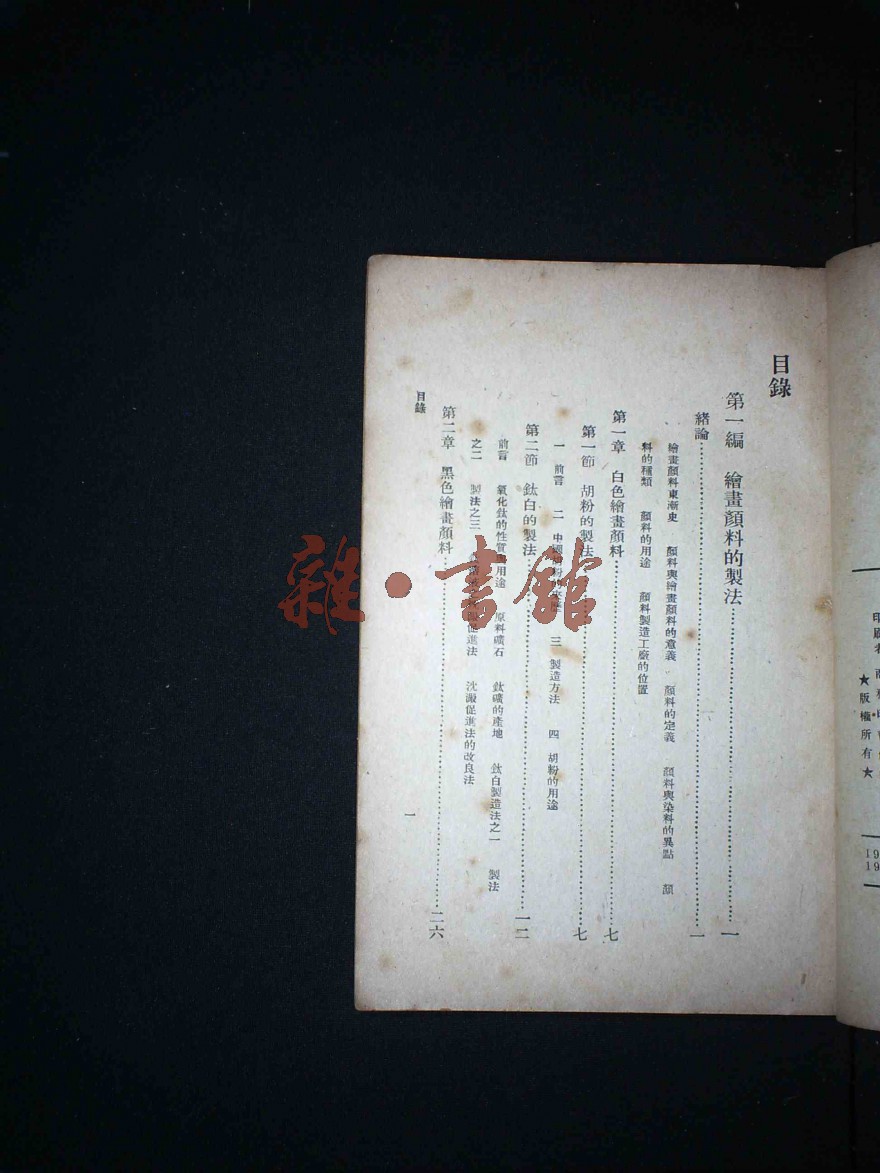 目錄
第一編　繪畫顏料的製法……一
緒論……一
繪畫顏料東漸史　顏料與繪畫顏料的意義　顏料的定義　顏料與染料的異點　顏
料的種類　顏料的用途　顏料製造工廠的位置
第一章　白色繪畫顏料……七
第一節　胡粉的製法……七
一　前言　二　中國　三　製造方法　四　胡粉的用途
第二節　鈦白的製法……一二
前言　氧化鈦的性質與用途　原料礦石　鈦礦的產地　鈦白製造法之一　製法
之二　製法之三　促進法　沈澱促進法的改良法
第二章　黑色繪畫顏料……二六
目錄
一
★版權所有★
19
19
雜·書館